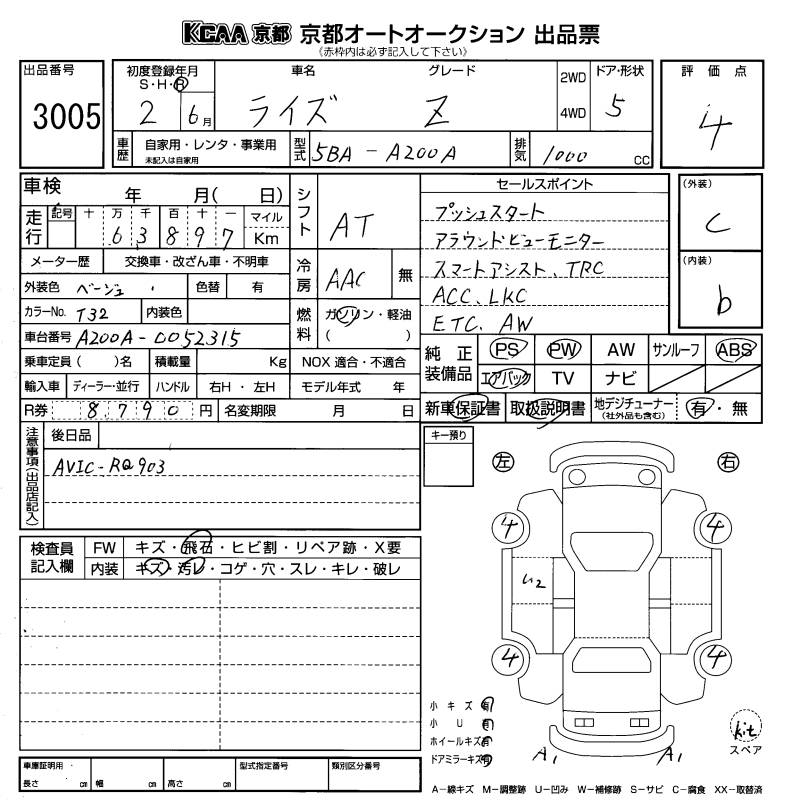 KCAA 京都 京都オートオークション 出品票
《赤枠内は必ず記入して下さい》
出品番号
3005
初度登録年月
S・H・R
2 6月
車名
ライズ
グレード
Z
2WD
4WD
ドア・形状
5
評価点
4
車歴
自家用・レンタ・事業用
未記入は自家用
型式
5BA - A200A
排気
1000 CC
車検 年 月( 日)
走行
記号 十 万 千 百 十 一 マイル
6 3 8 9 7 Km
シフト
AT
メーター歴 交換車・改ざん車・不明車
外装色 ベージュ 色替 有
冷房
AAC 無
カラーNo. T32 内装色
燃料
ガソリン・軽油
( )
車台番号 A200A-0052315
乗車定員( )名 積載量 Kg NOX 適合・不適合
輸入車 ディーラー・並行 ハンドル 右H・左H モデル年式 年
R券 8790円 名変期限 月 日
セールスポイント
プッシュスタート
アラウンドビューモニター
スマートアシスト、TRC
ACC、LKC
ETC、AW
(外装)
C
(内装)
b
純正装備品
PS PW AW サンルーフ ABS
エアバック TV ナビ
新車保証書 取扱説明書 地デジチューナー(社外品も含む) 有・無
注意事項(出品店記入)
後日品
AVIC-RQ903
キー預り
左 右
4 4
い2
4 4
検査員記入欄
FW キズ・飛石・ヒビ割・リペア跡・X要
内装 キズ・汚レ・コゲ・穴・スレ・キレ・破レ
小キズ有
小U有
ホイールキズ有
ドアミラーキズ有
A1 A1
kit
スペア
車庫証明用
長さ cm 幅 cm 高さ cm
型式指定番号
類別区分番号
A-線キズ M-調整跡 U-凹み W-補修跡 S-サビ C-腐食 XX-取替済